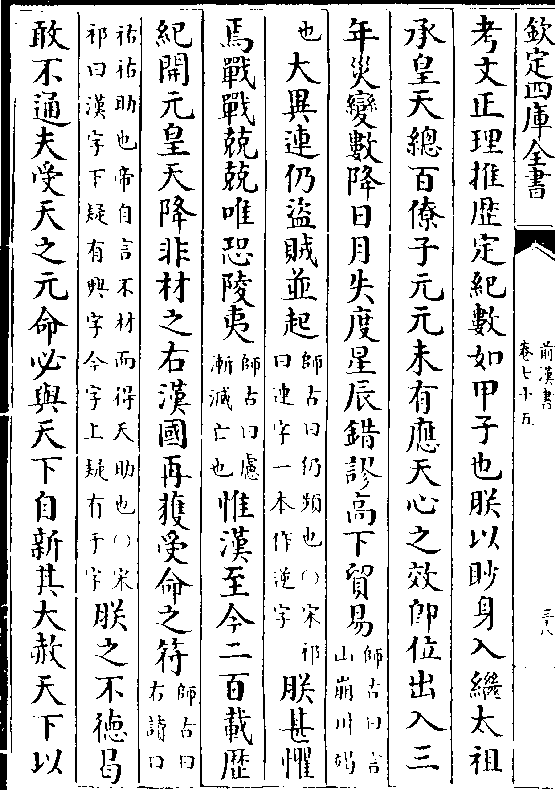 欽定四庫全書
前漢書
卷七十五
三八
考文正理推厯定紀數如甲子也朕以眇身入繼太祖
承皇天總百僚子元元未有應天心之效卽位出入三
年災變數降日月失度星辰錯謬高下貿易師古曰言山崩川竭
也大異連仍盜賊並起師古曰仍頻也○宋祁曰連字一本作逆字朕甚懼
焉戰戰兢兢唯恐陵夷師古曰慮漸滅亡也惟漢至今二百載厯
紀開元皇天降非材之右漢國再獲受命之符師古曰右讀曰
祐祐助也帝自言不材而得天助也○宋祁曰漢字下疑有興字今字上疑有于字朕之不德曷
敢不通夫受天之元命必與天下自新其大赦天下以